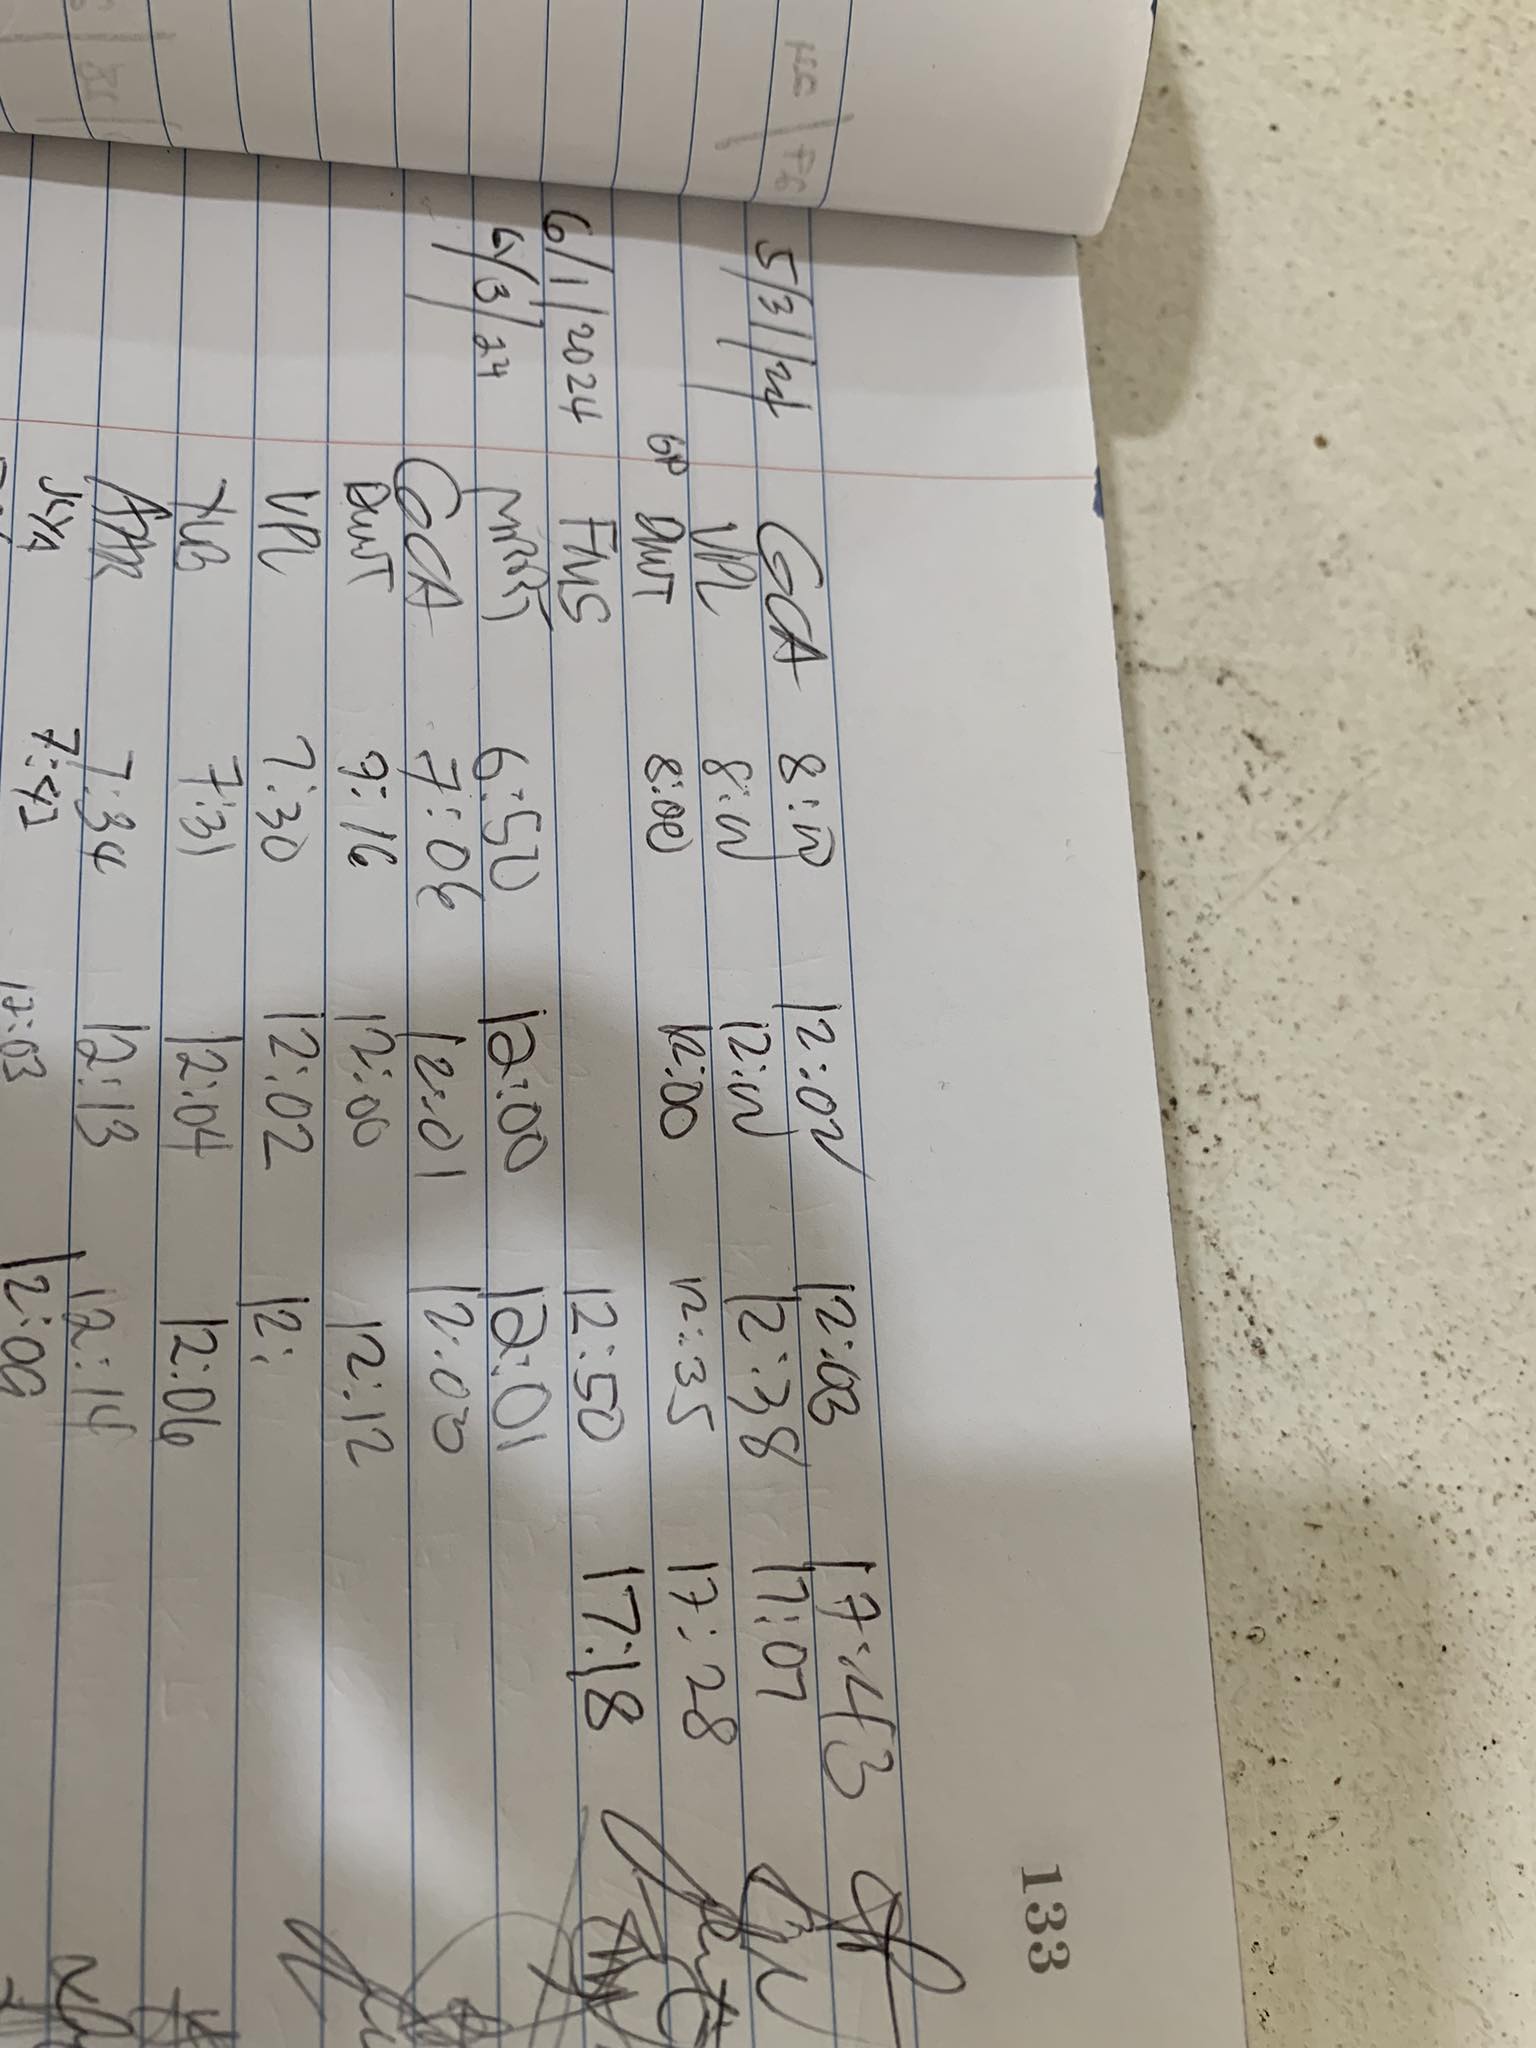 133
5/31/24 GCA 8:00 12:02 12:03 17:43
VPL 8:00 12:00 12:38 17:07
DWT 8:00 12:00 12:35 17:28
6/1/2024 FMS 12:50 17:18
6/3/24 6:50 12:00 12:01
GCA 7:06 12:01 12:03
DWT 9:16 12:00 12:12
VPL 7:30 12:02 12:
7:31 12:04 12:06
7:34 12:13 12:14
12:03 12:09